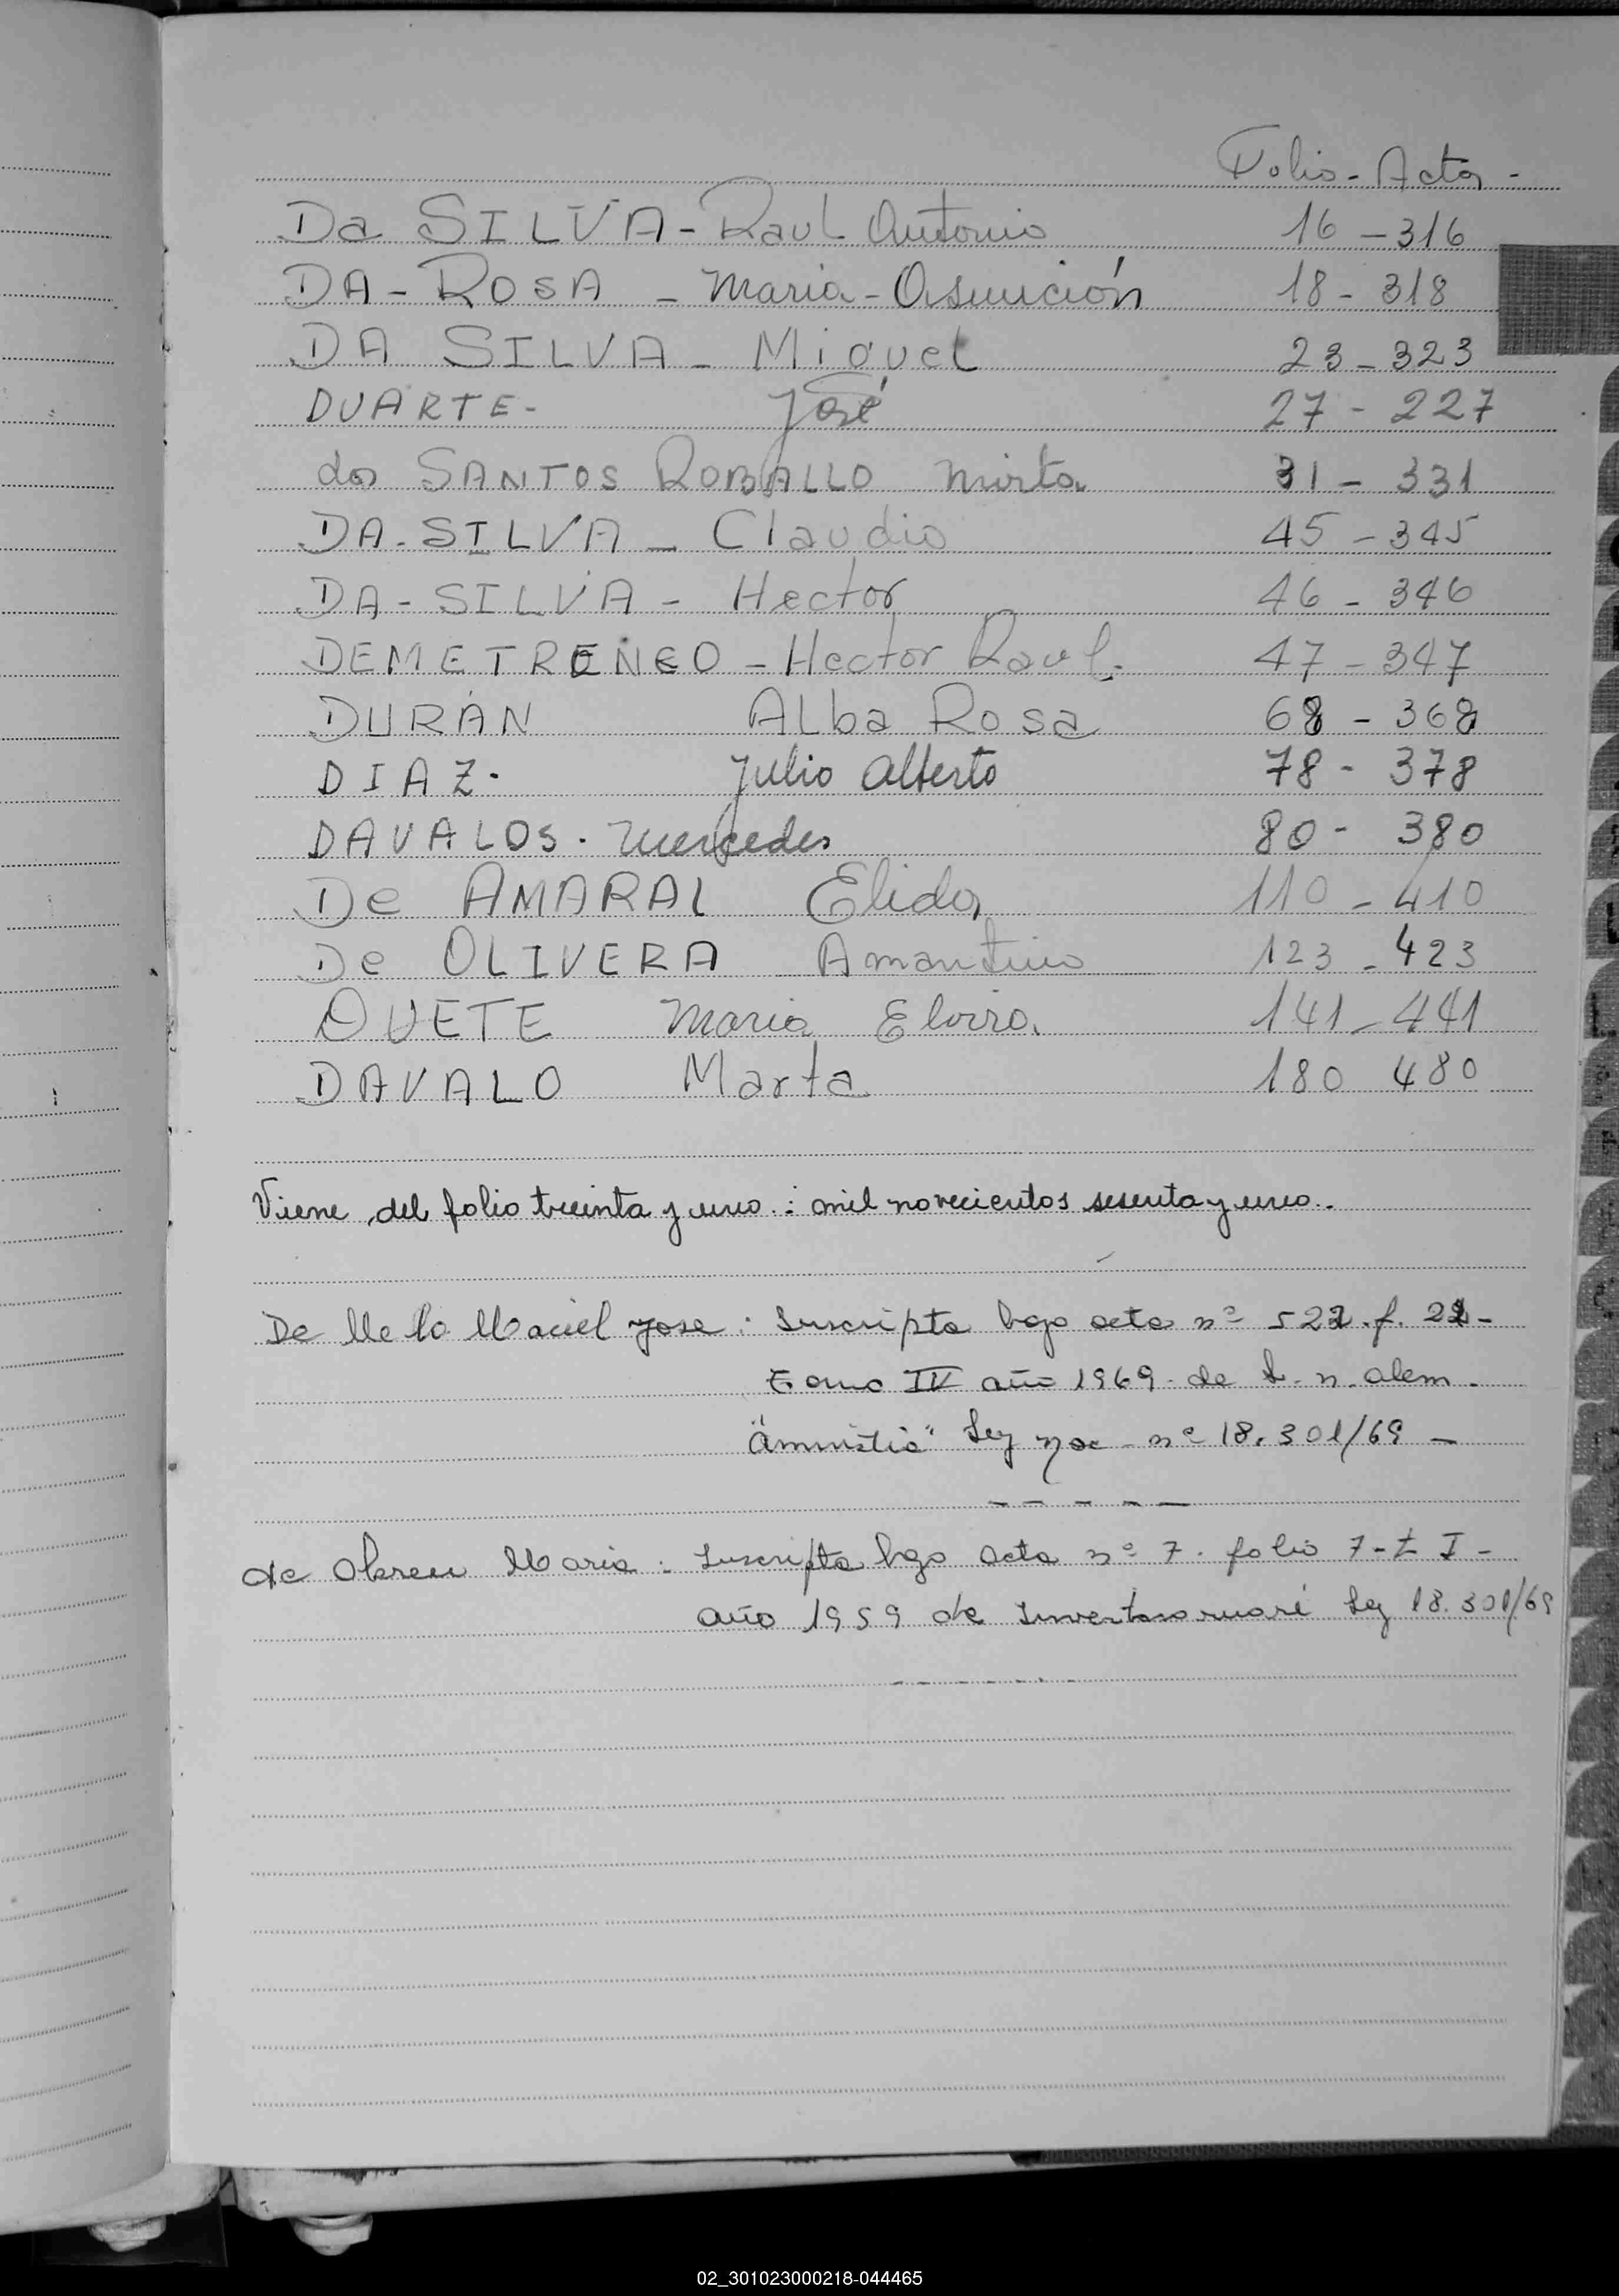 Folio - Acta -
Da SILVA - Raul Antonio 16 - 316
DA - ROSA - Maria - Asunción 18 - 318
DA SILVA - Miguel 23 - 323
DUARTE - José 27 - 227
dos SANTOS ROBALLO Mirta. 31 - 331
DA - SILVA - Claudio 45 - 345
DA - SILVA - Hector 46 - 346
DEMETRENEO - Hector Raul. 47 - 347
DURÁN ALba Rosa 68 - 368
DIAZ. Julio Alberto 78 - 378
DAVALOS. Mercedes 80 - 380
De AMARAL Elida 110 - 410
De OLIVERA Amantino 123 - 423
DUETE Maria Elvira. 141 - 441
DAVALO Marta 180 480
Viene del folio treinta y uno : mil novecientos sesenta y uno.
De Melo Maciel Jose : Inscripta bajo acta nº 522. f. 22 -
Tomo IV año 1969 - de L. n. Alem -
"Amnistia" Ley nº 18.301/69 -
de Abreu Maria : Inscripta bajo acta nº 7. folio 7 - t I -
año 1959 de Ley 18.301/69
02_301023000218-044465